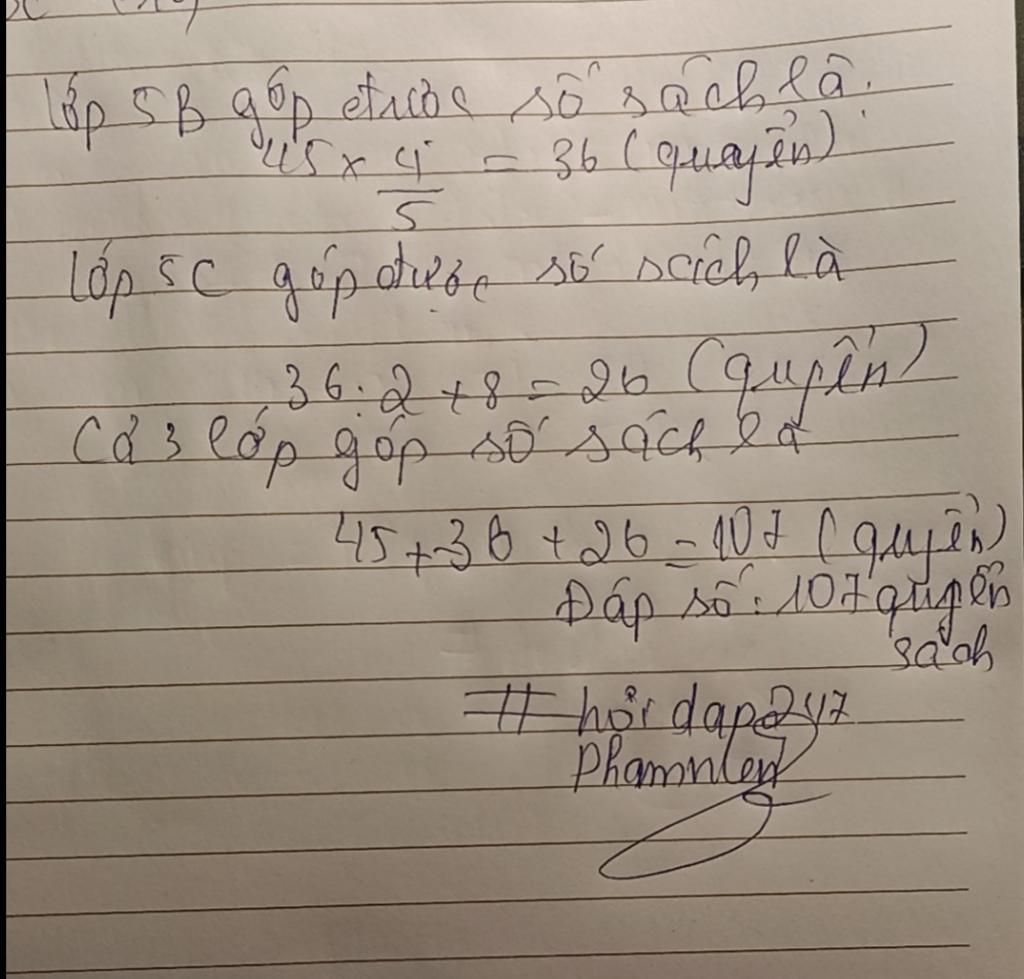 lớp 5B góp được số sách là:
45 x 4/5 = 36 (quyển)
lớp 5C góp được số sách là
36 : 2 + 8 = 26 (quyển)
Cả 3 lớp góp số sách là
45 + 36 + 26 = 107 (quyển)
Đáp số : 107 quyển
sách
# hỏi dap247
Phamnlen